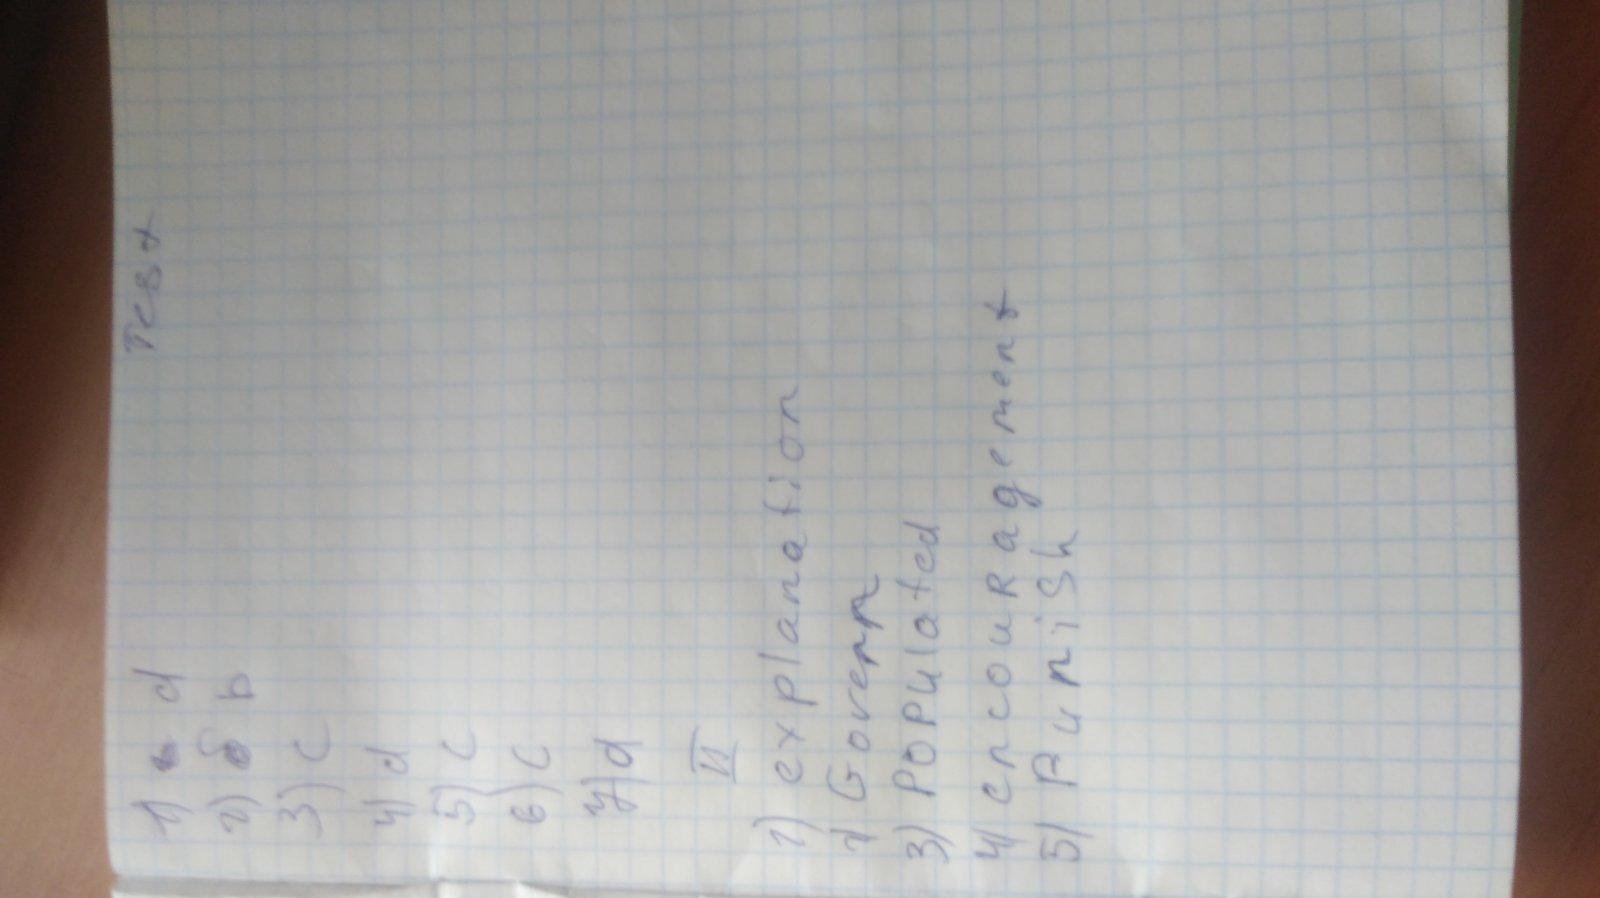 Test
1) d
2) b
3) c
4) d
5) c
6) c
7) d
II
1) explanation
2) Govern
3) Populated
4) encouRagement
5) Punish